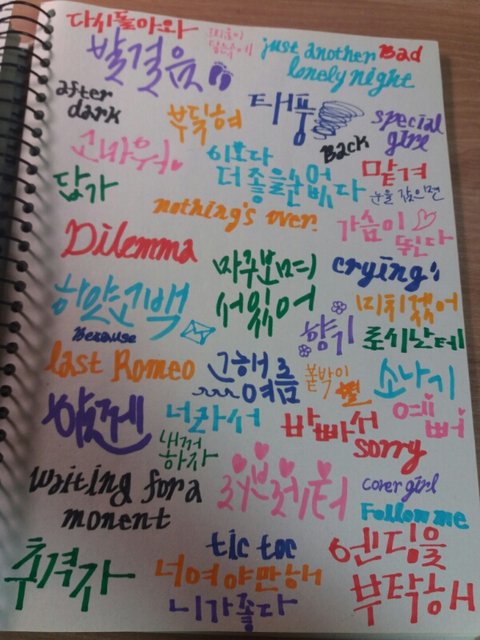 다시돌아와
발걸음
just another Bad
lonely night
after
dark
부딪혀
태풍
special
girl
Back
고마워
이보다
더 좋을순없
다
맡겨
눈을 감으면
답가
nothing's over.
가슴이
뛴다
Dilemma
마주보며
서있어
crying
하얀고백
Because
향기
미치겠어
로시난테
last Romeo
그해여름
붙박이
별
소나기
남겨
너라서
내꺼
하자
바빠서
sorry
예뻐
waiting for a
moment
러브레터
cover girl
Follow me
추격자
tic toc
너여야만해
니가좋다
엔딩을
부탁해